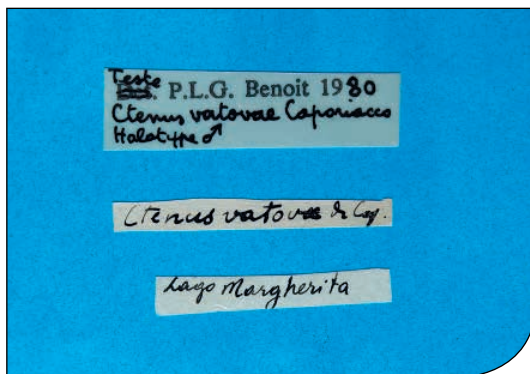 Teste P.L.G. Benoit 1980
Ctenus vatovae Caporiacco
Holotype ♂
Ctenus vatovae di Cap.
Lago Margherita